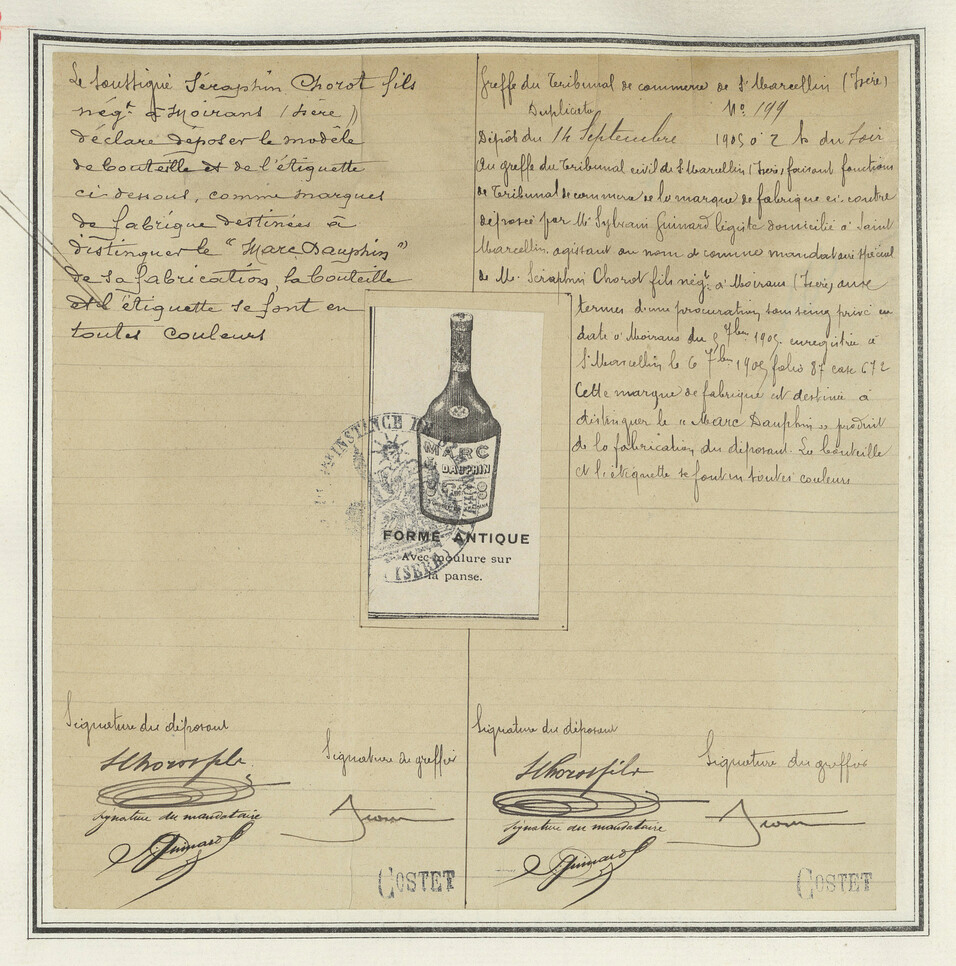 Le soussigné Séraphin Chorot fils
négt à Moirans (Isère)
déclare déposer le modèle
de bouteille et de l'étiquette
ci-dessous, comme marques
de fabrique destinées à
distinguer le "Marc Dauphin"
de sa fabrication, la bouteille
et l'étiquette se font en
toutes couleurs
Greffe du Tribunal de commerce de St Marcellin (Isère)
Duplicata No 199
Dépôt du 14 Septembre 1905 à 2 h du soir
Au greffe du Tribunal civil de St Marcellin (Isère) faisant fonctions
de Tribunal de commerce de la marque de fabrique ci-contre
déposée par Mr Sylvain Guinard légiste domicilié à Saint
Marcellin agissant au nom et comme mandataire spécial
de Mr Séraphin Chorot fils négt à Moirans (Isère) aux
termes d'une procuration sous seing privé en
date à Moirans du 7bre 1905 enregistrée à
St Marcellin le 6 7bre 1905 folio 87 case 672
Cette marque de fabrique est destinée à
distinguer le "Marc Dauphin" produit
de la fabrication du déposant. La bouteille
et l'étiquette se font en toutes couleurs
INSTANCE DE
(ISÈRE)
MARC
DAUPHIN
FORME ANTIQUE
Avec moulure sur
la panse.
Signature du déposant
Signature du greffier
SChorot fils
Signature du mandataire
S. Guinard
Signature du déposant
Signature du greffier
SChorot fils
Signature du mandataire
S. Guinard
COSTET
COSTET